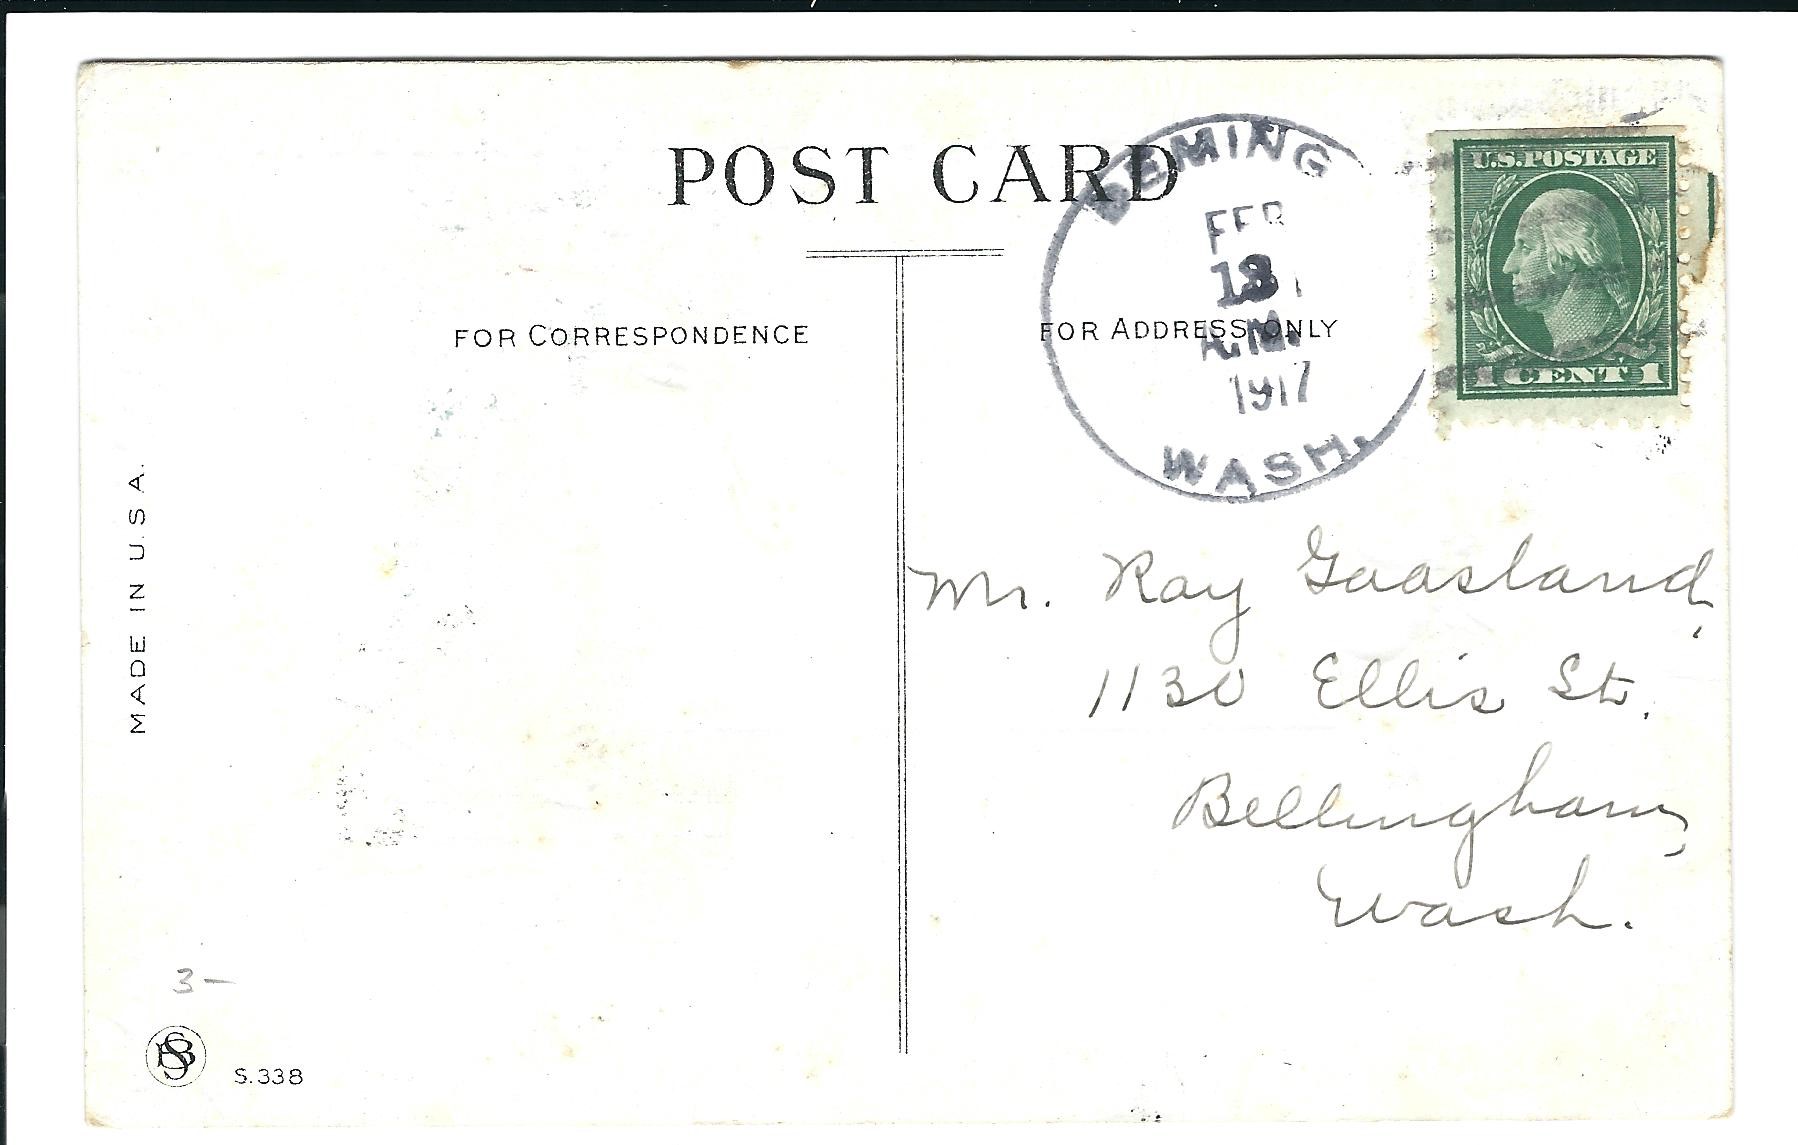 POST CARD
DEMING
FEB
A.M.
1917
WASH.
U.S. POSTAGE
1 CENT 1
FOR CORRESPONDENCE
FOR ADDRESS ONLY
MADE IN U.S.A.
Mr. Ray Gaasland,
1130 Ellis St.
Bellingham,
Wash.
3-
S.338